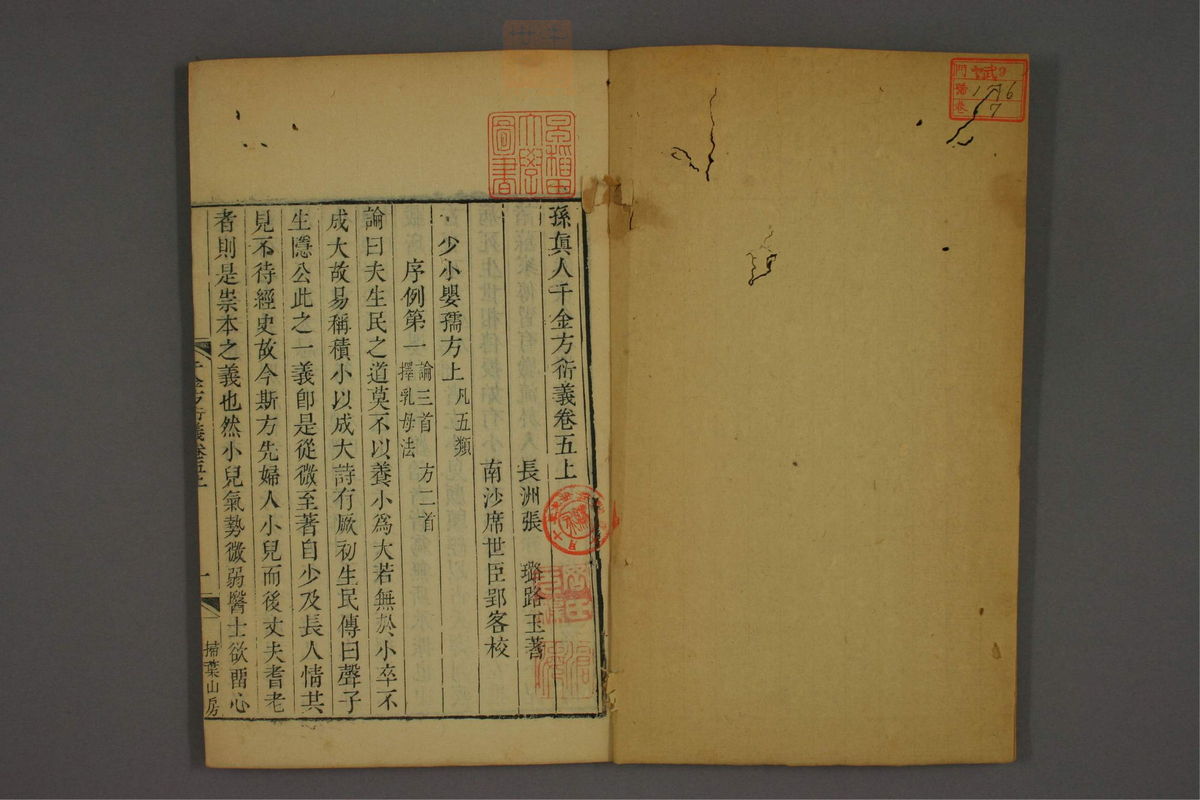 孫眞人千金方衍義卷五上
長洲張 璐路玉著
南沙席世臣郢客校
少小嬰孺方上 凡五類
序例第一 論三首 方二首 擇乳母法
論曰夫生民之道莫不以養小爲大若無於小卒不
成大故易稱積小以成大詩有厥初生民傳曰聲子
生隱公此之一義卽是從微至著自少及長人情共
見不待經史故今斯方先婦人小兒而後丈夫耆老
者則是崇本之義也然小兒氣勢微弱醫士欲畱心
千金方衍義卷五上
一
掃葉山房
早稻田大學圖書
門
號 176
卷 7